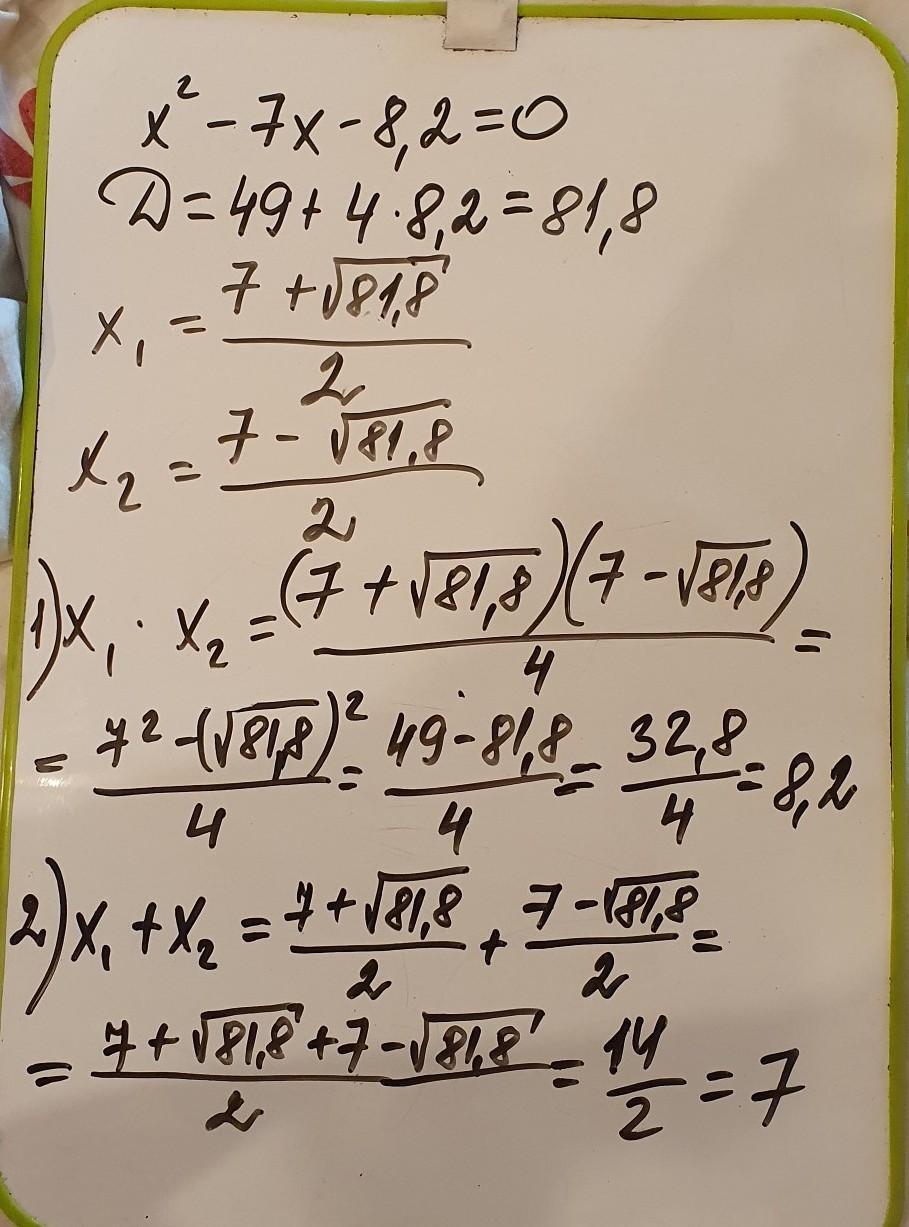 x² - 7x - 8,2 = 0
D = 49 + 4 · 8,2 = 81,8
x₁ = (7 + √81,8)/2
x₂ = (7 - √81,8)/2
1) x₁ · x₂ = (7 + √81,8)(7 - √81,8)/4 =
= (7² - (√81,8)²)/4 = (49 - 81,8)/4 = 32,8/4 = 8,2
2) x₁ + x₂ = (7 + √81,8)/2 + (7 - √81,8)/2 =
= (7 + √81,8 + 7 - √81,8)/2 = 14/2 = 7